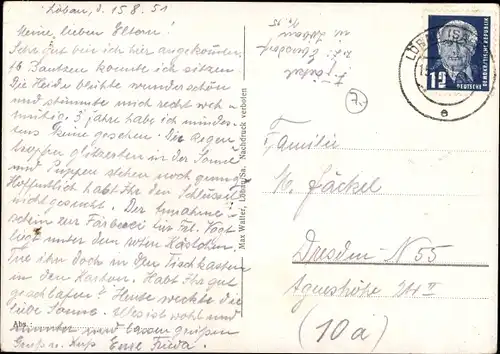 Löbau, d. 15.8.51
Meine lieben Eltern!
Sehr gut bin ich hier angekommen.
Bautzen konnte ich sitzen
Die Heide blühte wunderschön
und stimmte mich recht weh-
mütig. 3 Jahre habe ich mindes-
tens keine gesehen. Die
glitzerten in der Sonne
und Puppen stehen noch genug.
Hoffentlich habt Ihr den Schlüssel
nicht gesucht. Der Annahme-
schein zur Färberei für Frl. Vogt
liegt unter dem roten Kästchen.
Tue ihn doch in den Tischkasten
in den Karton. Habt Ihr gut
geschlafen? Heute weckte die
liebe Sonne. Alles ist wohl und
munter und lassen grüßen
Gruß u. Kuß Eure Frieda.
Abs.
Max Walter, Löbau/Sa. Nachdruck verboten
Jäckel
in Löbau
LÖBAU (SA
12
DEUTSCHE
DEMOKRATISCHE REPUBLIK
e
Familie
M. Jäckel
Dresden N 55
Agneshöhe
(10a)